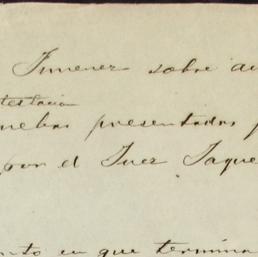 Jimenez sobre au
testacion
uebas presentadas p
por el Juez Jaque
nto en que termina